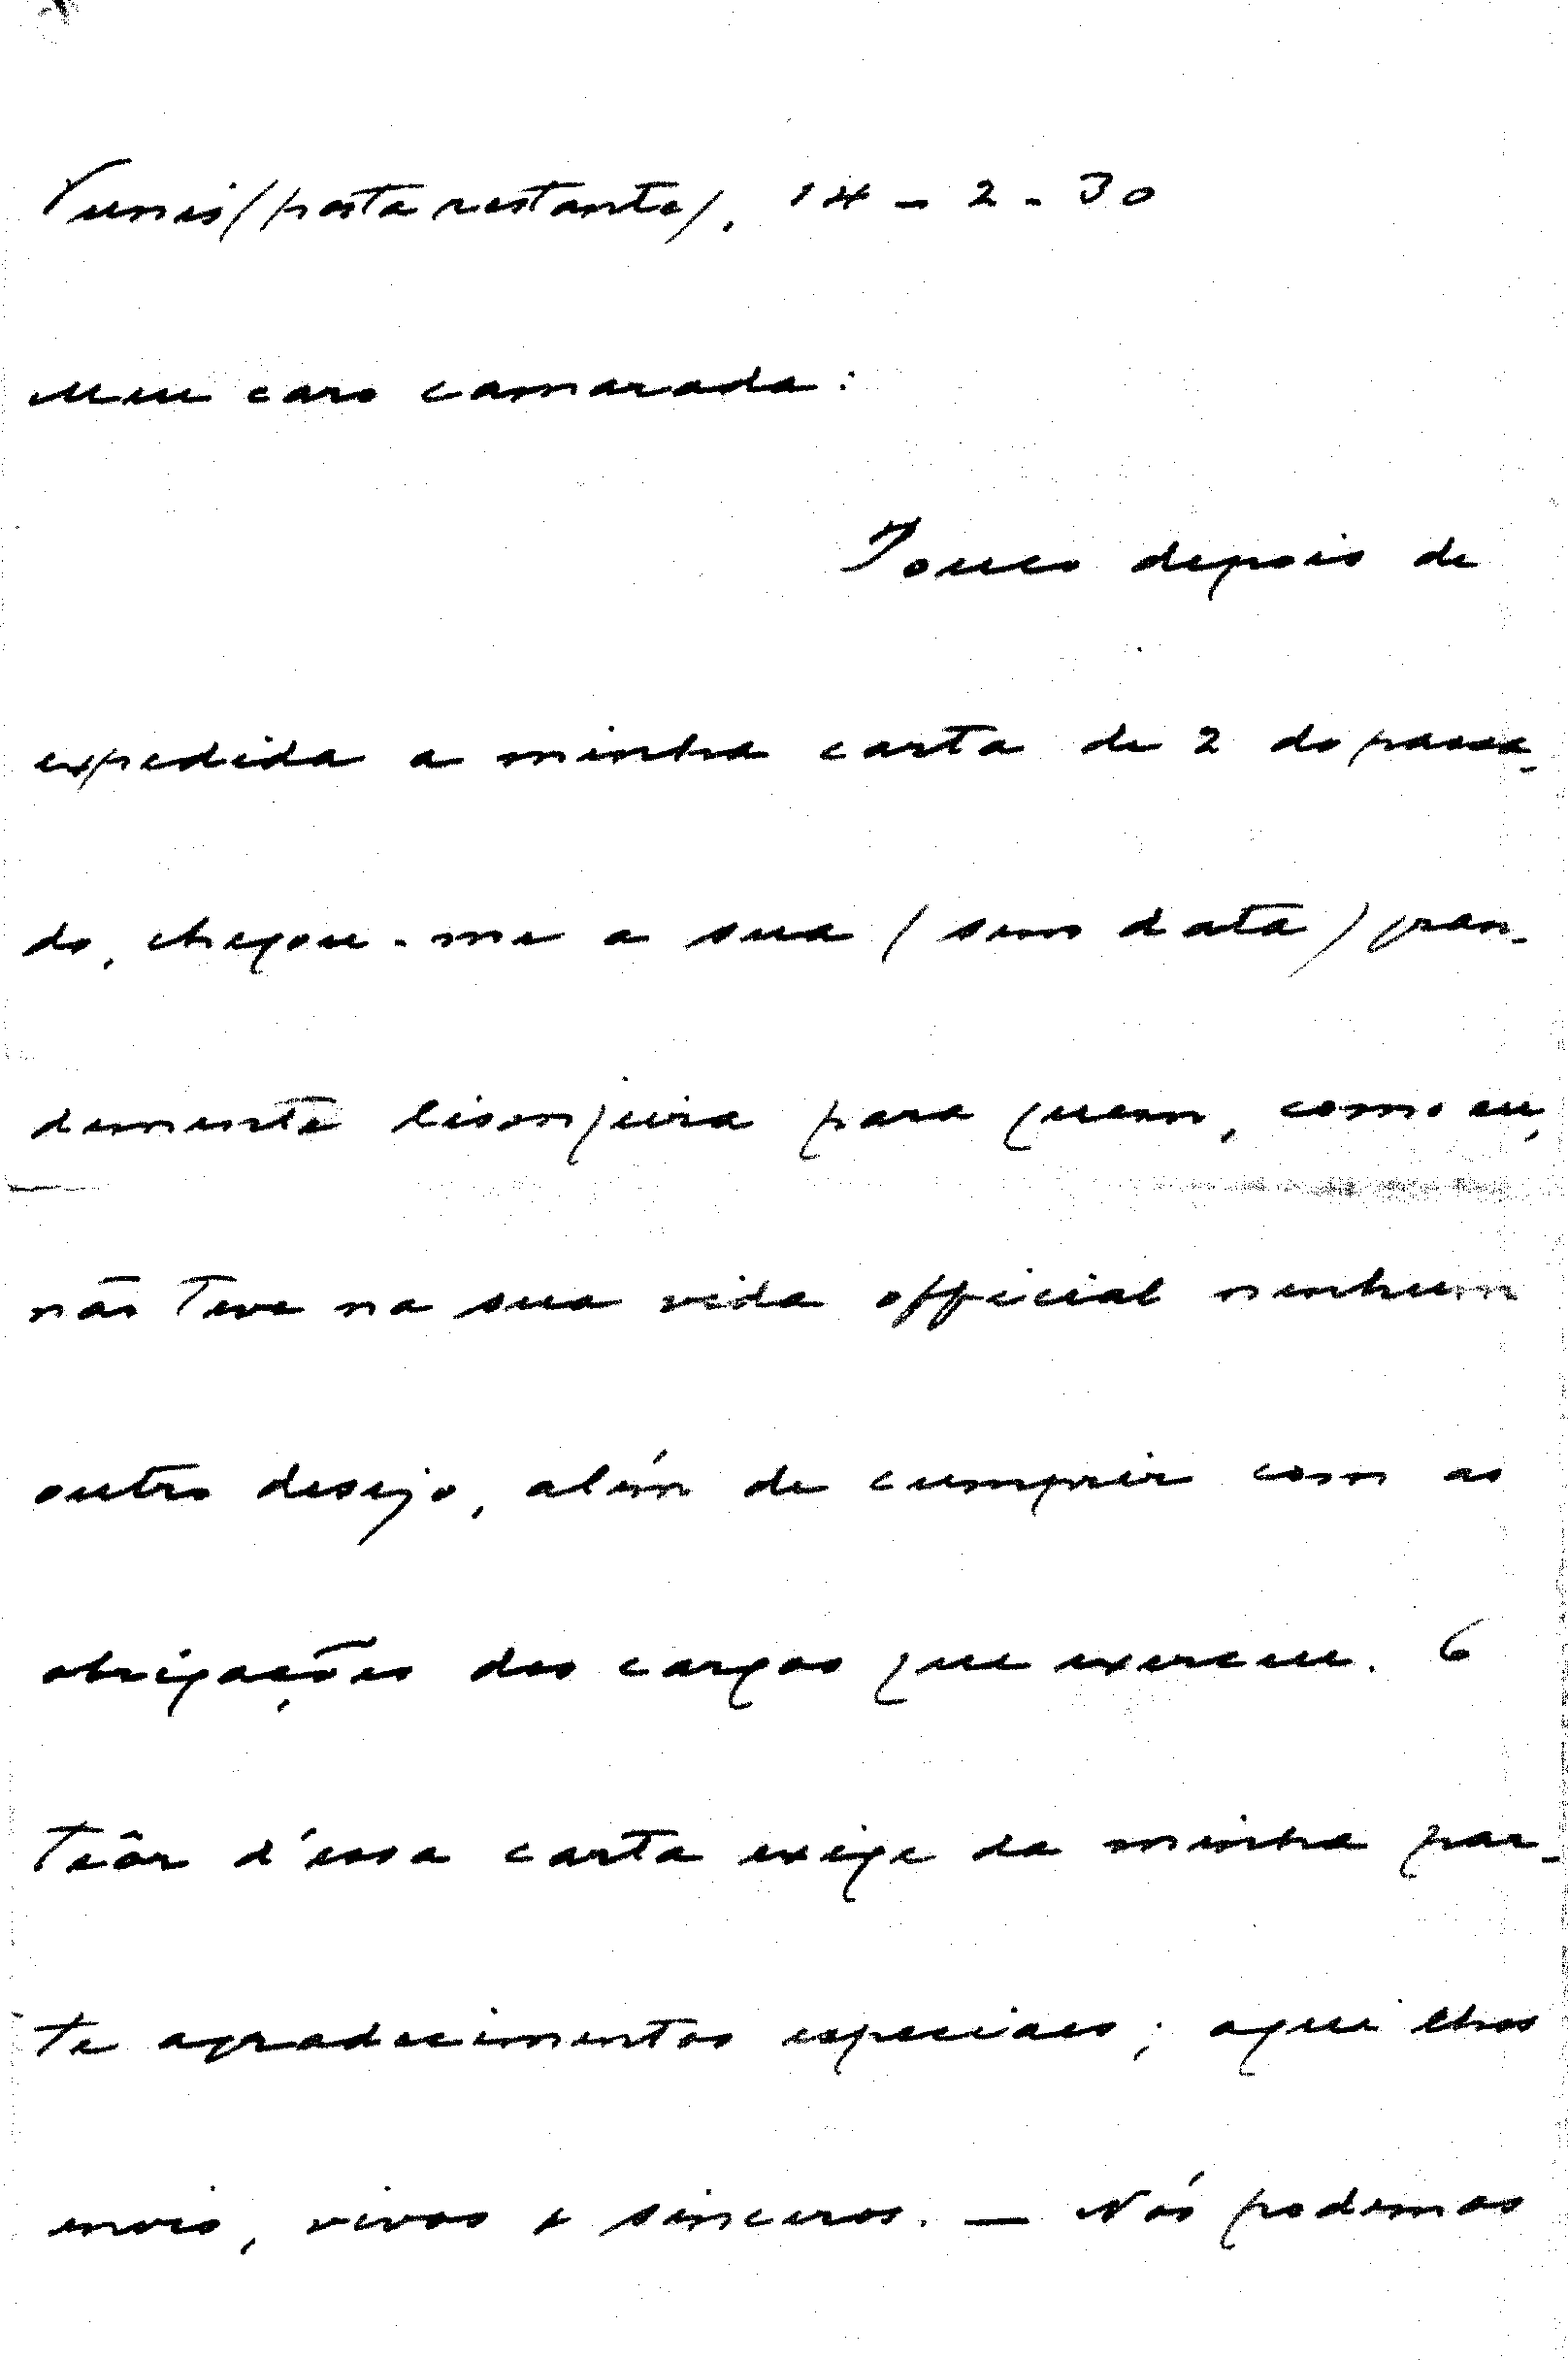 Tunis (posta restante), 14 - 2 - 30
Meu caro camarada:
Pouco depois de
expedida a minha carta de 2 do passa-
do, chegou-me a sua (sem data) gran-
demente lisonjeira para quem, como eu,
não teve na sua vida official nenhum
outro desejo, além de cumprir com as
obrigações dos cargos que exerceu. O
teôr d'essa carta exige da minha par-
te agradecimentos especiaes; aqui lhos
envio, vivos e sinceros. — Nós podemos